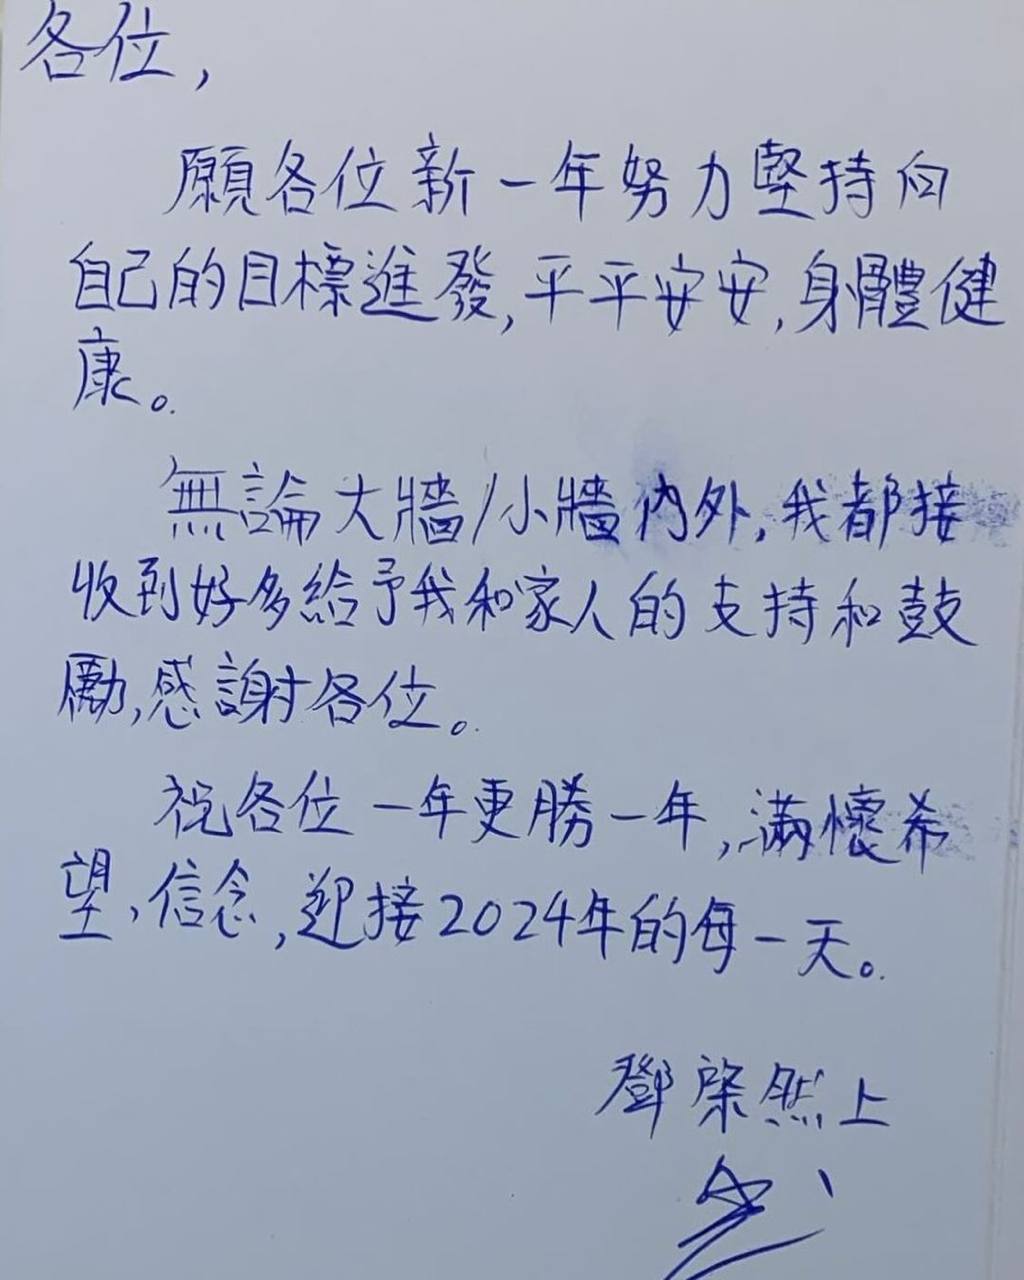 各位，
願各位新一年努力堅持向
自己的目標進發，平平安安，身體健
康。
無論大牆/小牆內外，我都接
收到好多給予我和家人的支持和鼓
勵，感謝各位。
祝各位一年更勝一年，滿懷希
望，信念，迎接2024年的每一天。
鄧棨然上